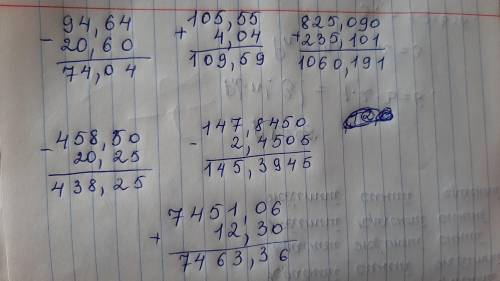 - 94,64
20,60
74,04
+ 105,55
4,04
109,59
+ 825,090
235,101
1060,191
- 458,50
20,25
438,25
- 147,8450
2,4505
145,3945
+ 7451,06
12,30
7463,36